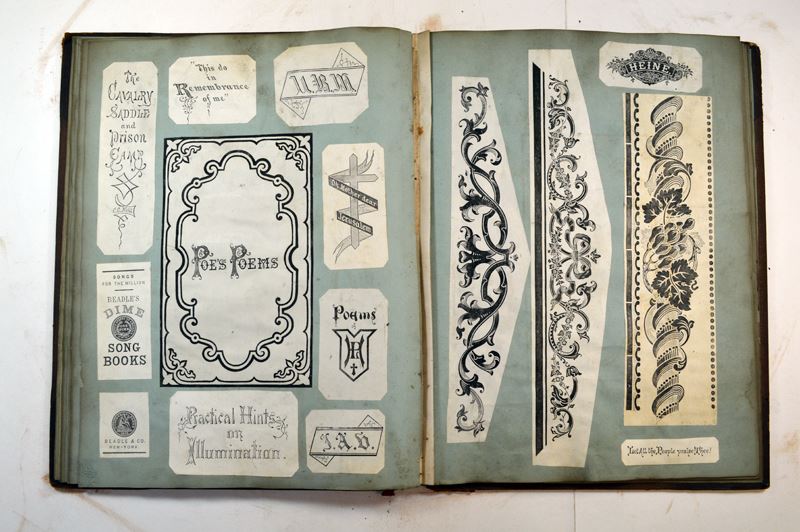 The
CAVALRY
SADDLE
and
Prison
"This do
in
Remembrance
of me"
U.H.M
Oh Mother dear
Jerusalem
POE'S POEMS
SONGS
FOR THE MILLION
BEADLE'S
DIME
SONG
BOOKS
Poems
H
BEADLE & CO.
NEW-YORK.
Practical Hints
on
Illumination.
HEINE
Let All the People praise Thee!